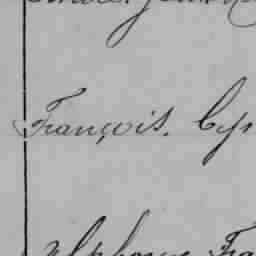 François. Cyr
Alphonse Fra